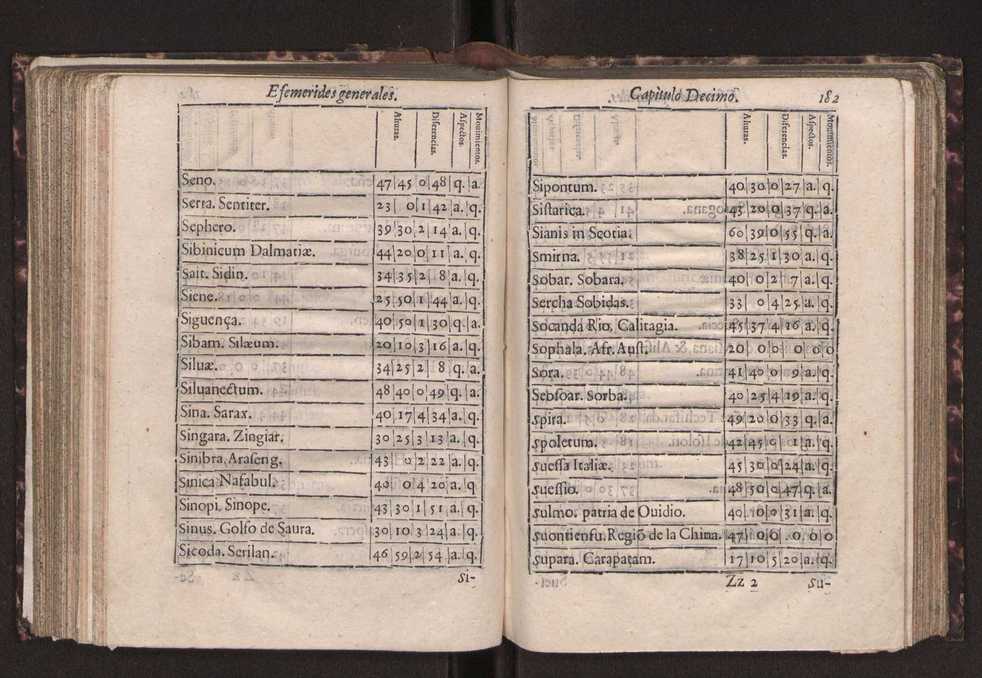 Efemerides generales.
Alturas. Diferencias. Aspectos. Mouimientos.
Seno. 47 45 0 48 q. a.
Serra. Sentiter. 23 0 1 42 a. q.
Sephero. 39 30 2 14 a. q.
Sibinicum Dalmatiæ. 44 20 0 11 a. q.
Sait. Sidin. 34 35 2 8 a. q.
Siene. 25 50 1 44 a. q.
Siguença. 40 50 1 30 q. a.
Sibam. Silæum. 20 10 3 16 a. q.
Siluæ. 34 25 2 8 q. a.
Siluanectum. 48 40 0 49 q. a.
Sina. Sarax. 40 17 4 34 a. q.
Singara. Zingiar. 30 25 3 13 a. q.
Sinibra. Araseng. 43 0 2 22 a. q.
Sinica Nasabul. 40 0 4 20 a. q.
Sinopi. Sinope. 43 30 1 51 a. q.
Sinus. Golfo de Saura. 30 10 3 24 a. q.
Sicoda. Scrilan. 46 59 2 54 a. q.
Si-
Capitulo Decimo. 182
Alturas. Diferencias. Aspectos. Mouimientos.
Sipontum. 40 30 0 27 a. q.
Sistarica. 43 20 0 37 q. a.
Sianis in Scotia. 60 39 0 55 q. a.
Smirna. 38 25 1 30 a. q.
Sobar. Sobara. 40 0 2 7 a. q.
Sercha Sobidas. 33 0 4 25 a. q.
Socanda Rio, Calitagia. 45 37 4 16 a. q.
Sophala. Afr. Aust. 20 0 0 0 0 0
Sora. 41 40 0 9 a. q.
Sebsoar. Sorba. 40 25 4 19 a. q.
Spira. 49 20 0 33 q. a.
Spoletum. 42 45 0 1 a. q.
Suessa Italiæ. 45 30 0 24 a. q.
Suessio. 48 50 0 47 q. a.
Sulmo. patria de Ouidio. 40 10 0 31 a. q.
Suontiensu. Regiõ de la China. 47 0 0 0 0 0
Supara. Carapatam. 17 10 5 20 a. q.
Zz 2 Su-